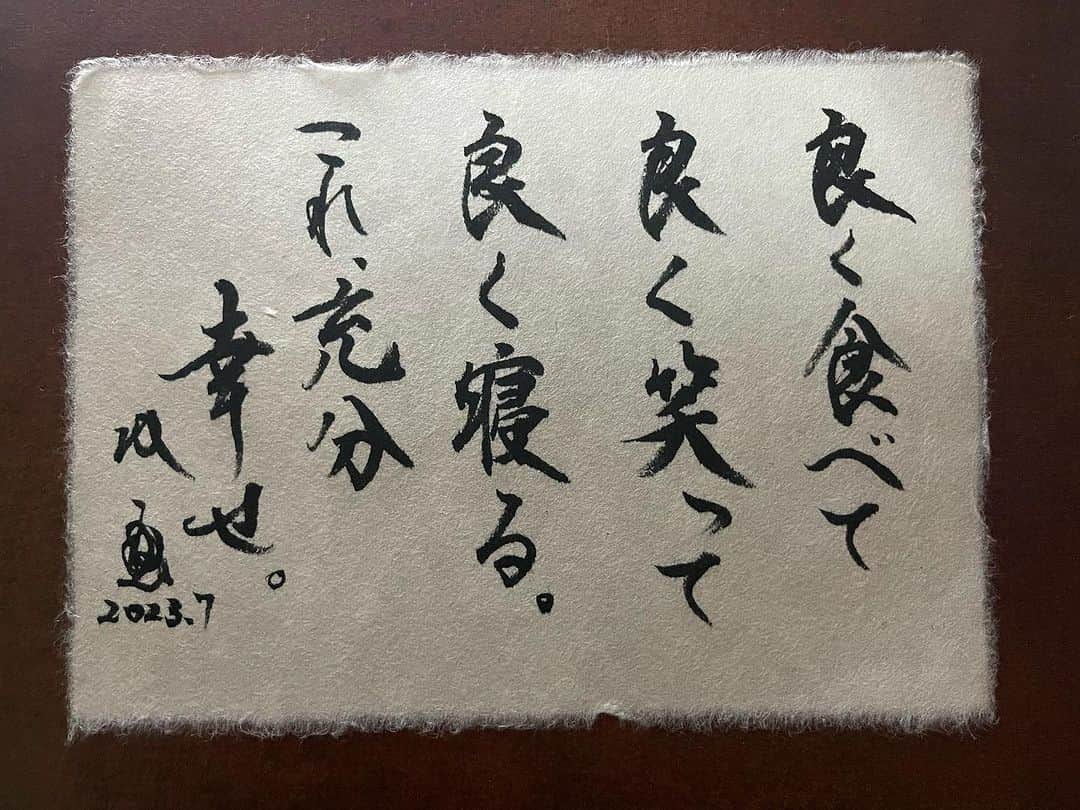 良く食べて
良く笑って
良く寝る。
これ、充分
幸せ。
2023.7